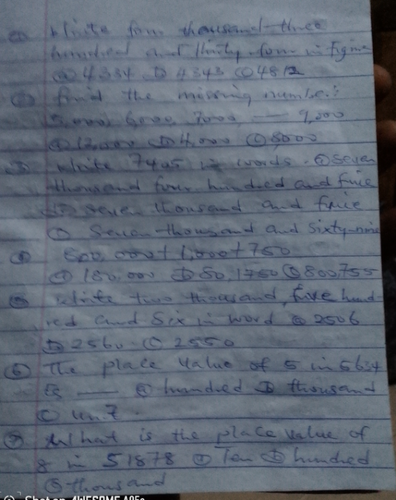 ① Write four thousand three
hundred and thirty four in figure
ⓐ 4334 ⓑ 4343 ⓒ 4812
② find the missing number:
5,000, 6000, 7000 — 9,000
ⓐ 12,000 ⓑ 4,000 ⓒ 8000
③ Write 7405 in words. ⓐ seven
thousand four hundred and five
ⓑ seven thousand and five
ⓒ seven thousand and sixty nine
④ 600,000 + 1,000 + 750
ⓐ 180,000 ⓑ 50,1750 ⓒ 800,755
⑤ Write two thousand, five hund-
red and six in word ⓐ 2506
ⓑ 2560 ⓒ 2550
⑥ The place value of 5 in 5634
is — ⓐ hundred ⓑ thousand
ⓒ unit.
⑦ What is the place value of
8 in 51878 ⓐ Ten ⓑ hundred
ⓒ thousand
Shot on AWESOME A05s